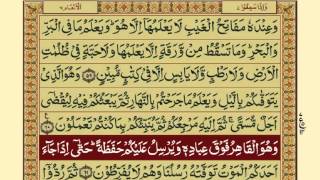 وَاِذَا سَمِعُوْا ٧ الْاَنْعَام ٦
وَعِنْدَهٗ مَفَاتِحُ الْغَيْبِ لَا يَعْلَمُهَاۤ اِلَّا هُوَ ؕ وَيَعْلَمُ مَا فِي الْبَرِّ
وَالْبَحْرِ ؕ وَمَا تَسْقُطُ مِنْ وَّرَقَةٍ اِلَّا يَعْلَمُهَا وَلَا حَبَّةٍ فِيْ ظُلُمٰتِ
الْاَرْضِ وَلَا رَطْبٍ وَّلَا يَابِسٍ اِلَّا فِيْ كِتٰبٍ مُّبِيْنٍ ۵۹ وَهُوَ الَّذِيْ
يَتَوَفّٰىكُمْ بِالَّيْلِ وَيَعْلَمُ مَا جَرَحْتُمْ بِالنَّهَارِ ثُمَّ يَبْعَثُكُمْ فِيْهِ لِيُقْضٰۤى
اَجَلٌ مُّسَمًّى ۚ ثُمَّ اِلَيْهِ مَرْجِعُكُمْ ثُمَّ يُنَبِّئُكُمْ بِمَا كُنْتُمْ تَعْمَلُوْنَ ۶۰
وَهُوَ الْقَاهِرُ فَوْقَ عِبَادِهٖ وَيُرْسِلُ عَلَيْكُمْ حَفَظَةً ؕ حَتّٰۤى اِذَا جَآءَ
اَحَدَكُمُ الْمَوْتُ تَوَفَّتْهُ رُسُلُنَا وَهُمْ لَا يُفَرِّطُوْنَ ۶۱ ثُمَّ رُدُّوْۤا